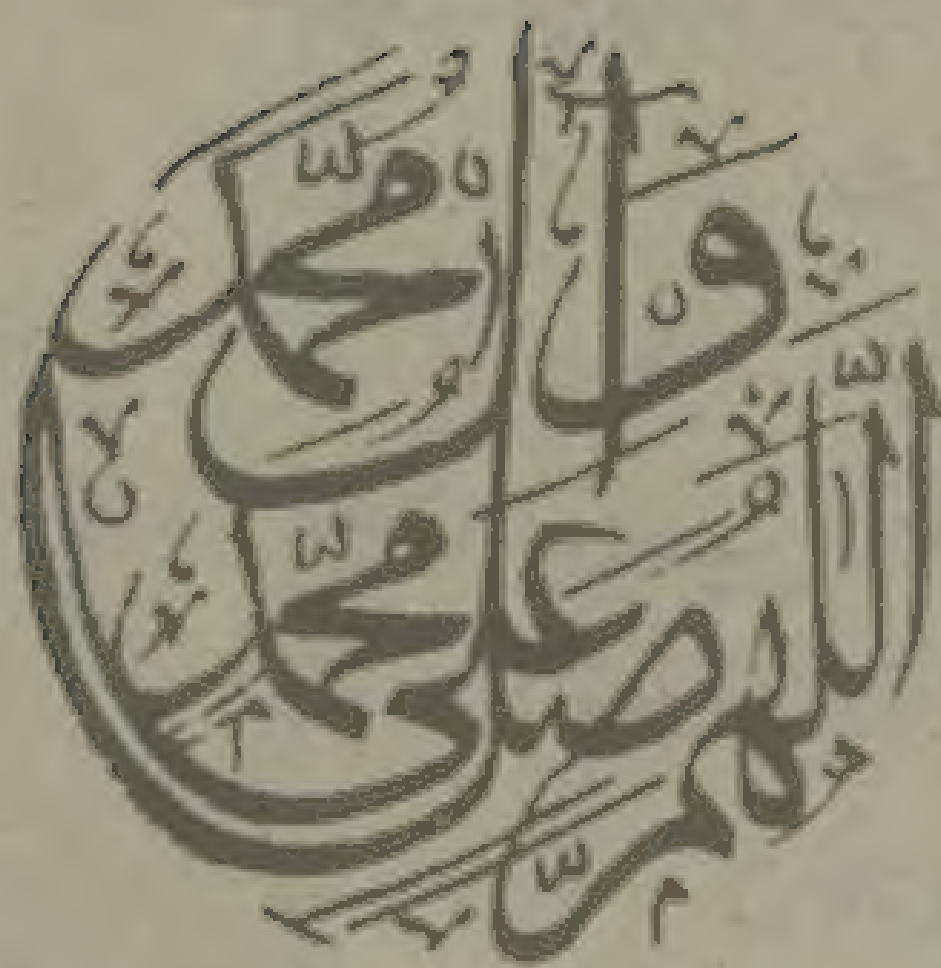 اللّٰهُمَّ صَلِّ عَلٰى مُحَمَّدٍ
وَآلِ مُحَمَّدٍ